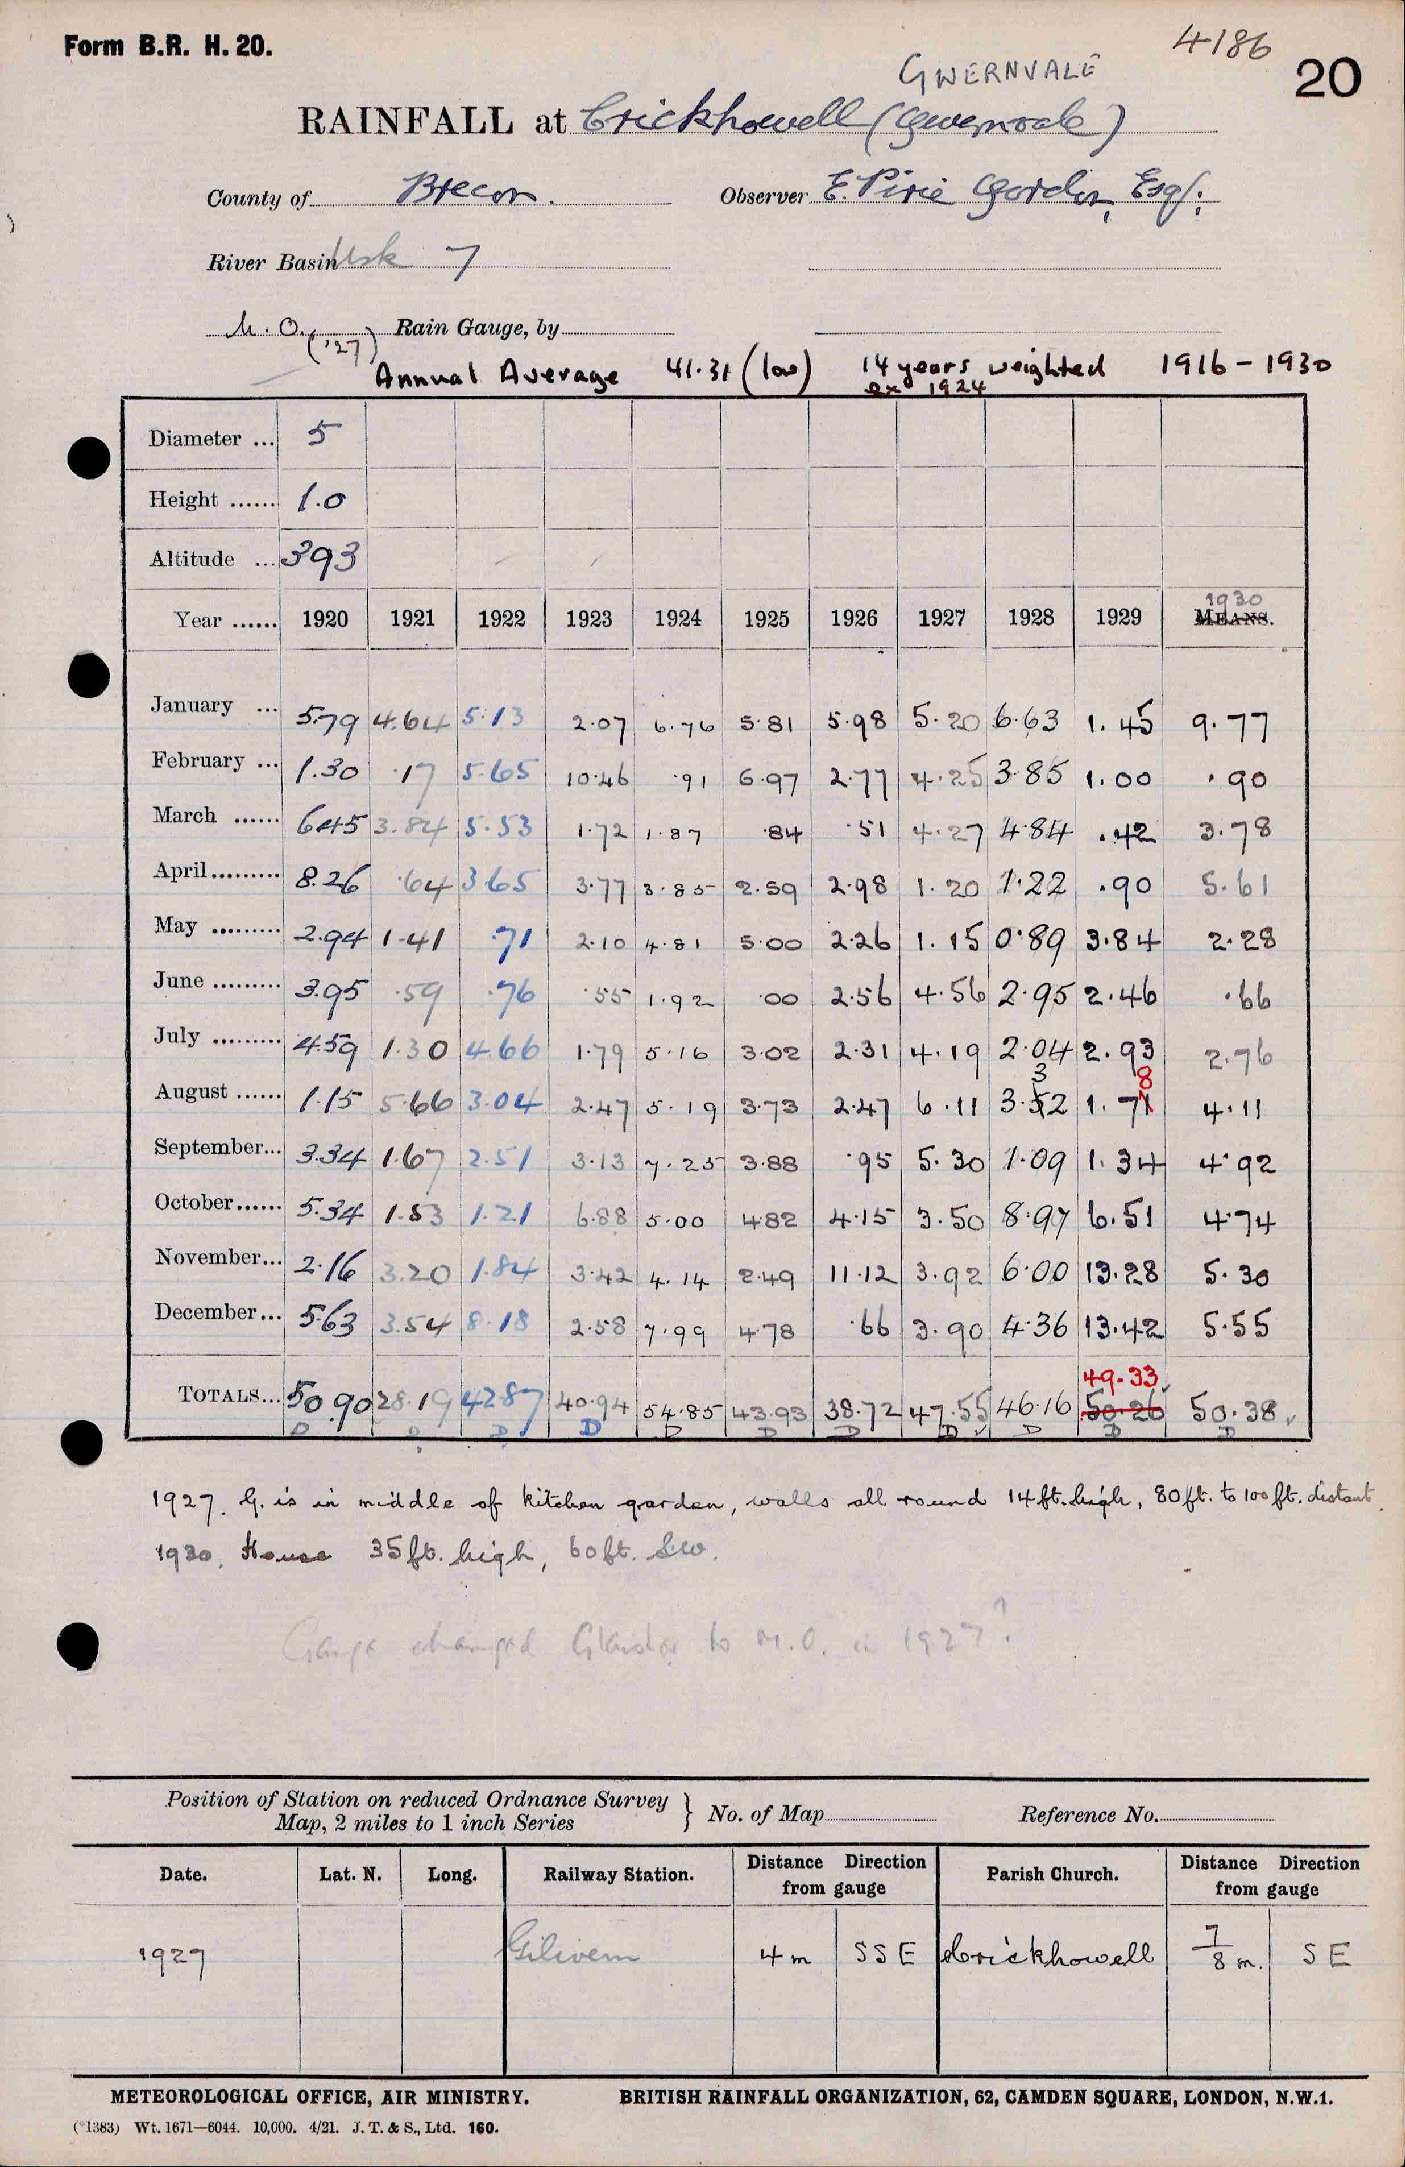 Form B.R. H. 20.
4186
20
GWERNVALE
RAINFALL at Crickhowell (Gwernvale)
County of Brecon. Observer E. Pirie Gordon, Esq.
River Basin Usk 7
M.O. ('27) Rain Gauge, by
Annual Average 41.31 (low) 14 years weighted 1916-1930
ex 1924
Diameter ... 5
Height ...... 1.0
Altitude ... 393
1930
Year ...... 1920 1921 1922 1923 1924 1925 1926 1927 1928 1929 MEANS.
January ... 5.79 4.64 5.13 2.07 6.76 5.81 5.98 5.20 6.63 1.45 9.77
February ... 1.30 .17 5.65 10.46 .91 6.97 2.77 4.25 3.85 1.00 .90
March ...... 6.45 3.84 5.53 1.72 1.87 .84 .51 4.27 4.84 .42 3.78
April ......... 8.26 .64 3.65 3.77 3.85 2.59 2.98 1.20 1.22 .90 5.61
May ......... 2.94 1.41 .71 2.10 4.81 5.00 2.26 1.15 0.89 3.84 2.28
June ......... 3.95 .59 .76 .55 1.92 .00 2.56 4.56 2.95 2.46 .66
July ......... 4.59 1.30 4.66 1.79 5.16 3.02 2.31 4.19 2.04 2.93 2.76
3 8
August ...... 1.15 5.66 3.04 2.47 5.19 3.73 2.47 6.11 3.52 1.71 4.11
September... 3.34 1.67 2.51 3.13 7.25 3.88 .95 5.30 1.09 1.34 4.92
October...... 5.34 1.53 1.21 6.88 5.00 4.82 4.15 3.50 8.97 6.51 4.74
November... 2.16 3.20 1.84 3.42 4.14 2.49 11.12 3.92 6.00 13.28 5.30
December... 5.63 3.54 8.18 2.58 7.99 4.78 .66 3.90 4.36 13.42 5.55
49.33
TOTALS... 50.90 28.19 42.87 40.94 54.85 43.93 38.72 47.55 46.16 50.26 50.38
D D D D D D D D D D
1927. G. is in middle of kitchen garden, walls all round 14 ft. high, 80 ft. to 100 ft. distant.
1930. House 35 ft. high, 60 ft. S.W.
Gauge changed Glaisher to M.O. in 1927?
Position of Station on reduced Ordnance Survey
Map, 2 miles to 1 inch Series } No. of Map Reference No.
Date. Lat. N. Long. Railway Station. Distance Direction from gauge Parish Church. Distance Direction from gauge
1927 Gilwern 4 m SSE Crickhowell 7/8 m. SE
METEOROLOGICAL OFFICE, AIR MINISTRY. BRITISH RAINFALL ORGANIZATION, 62, CAMDEN SQUARE, LONDON, N.W.1.
(*1383) Wt. 1671—6044. 10,000. 4/21. J. T. & S., Ltd. 160.